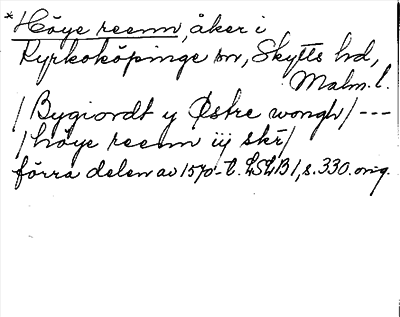 *Höye reenn, åker i
Kyrkoköpinge sn, Skytts hd,
Malm. l.
/Bygiordt y Østre wongh/ ---
/höye reenn iij skr/
förra delen av 1570-t. LSLB1, s. 330. orig.